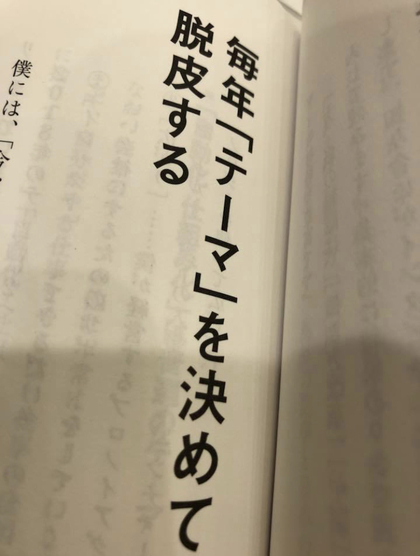 毎年「テーマ」を決めて
脱皮する
僕には、「今